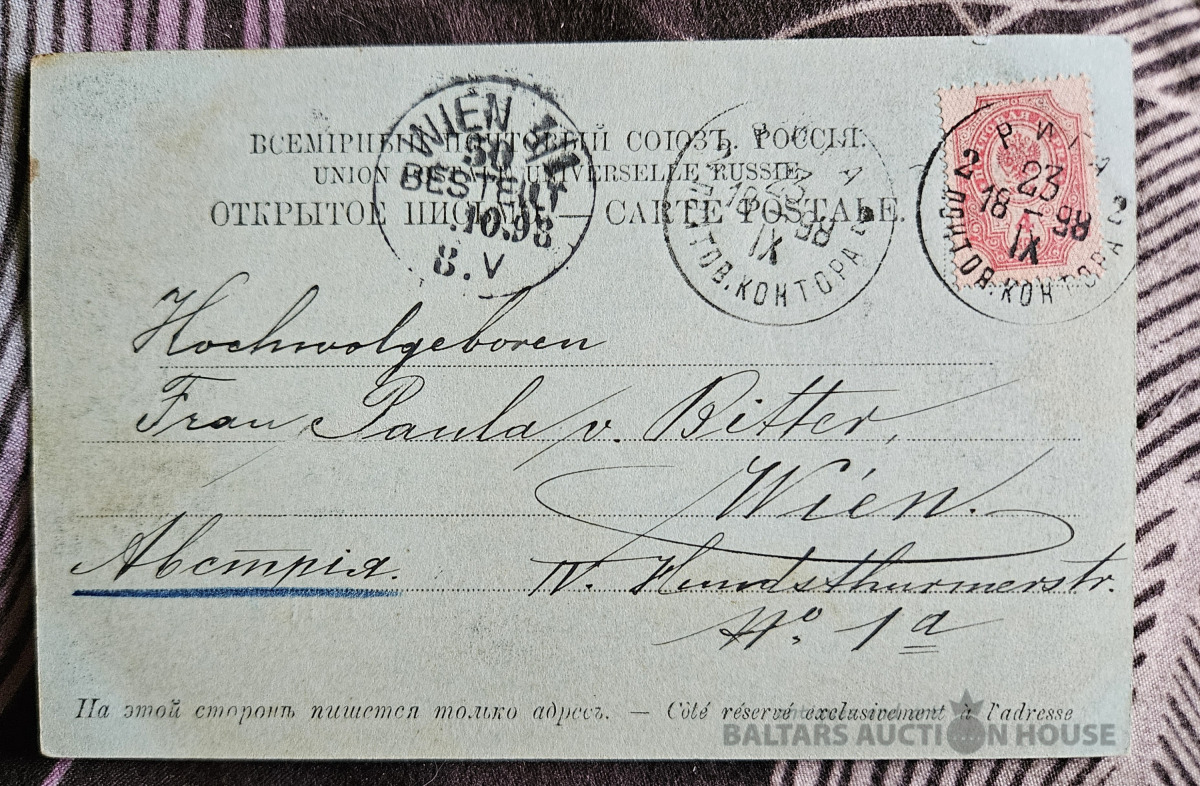 ВСЕМІРНЫЙ ПОЧТОВЫЙ СОЮЗЪ. РОССІЯ.
UNION POSTALE UNIVERSELLE RUSSIE.
ОТКРЫТОЕ ПИСЬМО. — CARTE POSTALE.
WIEN 4/1
30
BESTELLT
.10.98
8.V
РИГА
23
18 - 98
IX
ПОЧТОВ. КОНТОРА 2
РИГА
23
18 - 98
IX
2 ПОЧТОВ. КОНТОРА 2
Hochwolgeboren
Frau Paula v. Ritter,
Wien.
Австрія.
IV. Hundsthurmerstr.
No. 1a
На этой сторонѣ пишется только адресъ. — Côté réservé exclusivement à l'adresse
BALTARS AUCTION HOUSE